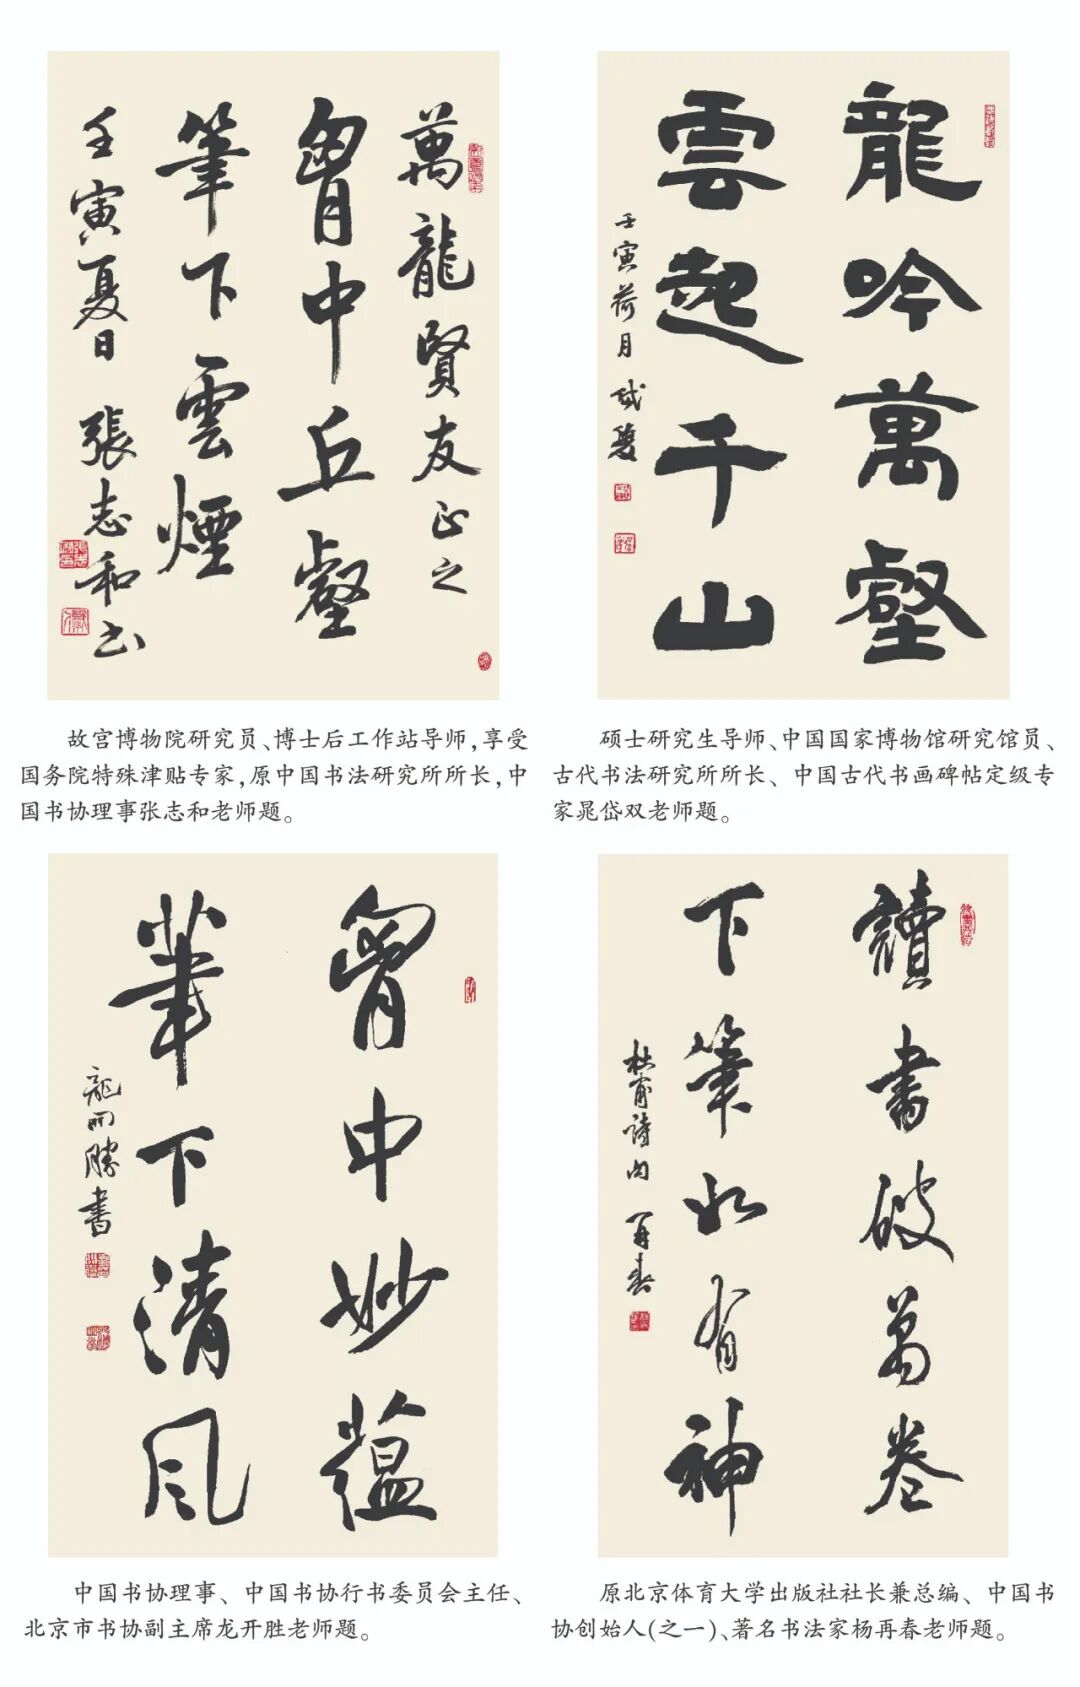 萬龍賢友正之
胷中丘壑
筆下雲煙
壬寅夏日 張志和书
龍吟萬壑
雲起千山
壬寅荷月 岱雙
故宫博物院研究员、博士后工作站导师,享受
国务院特殊津贴专家,原中国书法研究所所长,中
国书协理事张志和老师题。
硕士研究生导师、中国国家博物馆研究馆员、
古代书法研究所所长、中国古代书画碑帖定级专
家晁岱双老师题。
胷中妙蕴
筆下清风
龍開勝書
讀書破萬卷
下筆如有神
杜甫詩句 再春
中国书协理事、中国书协行书委员会主任、
北京市书协副主席龙开胜老师题。
原北京体育大学出版社社长兼总编、中国书
协创始人(之一)、著名书法家杨再春老师题。